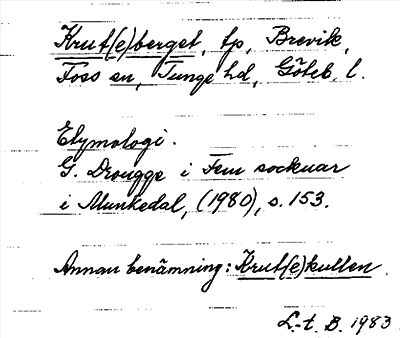 Krut(e)berget, tp, Brevik,
Foss sn, Tunge hd, Göteb. l.
Etymologi.
G. Drougge i Fem socknar
i Munkedal, (1980), s. 153.
Annan benämning: Krut(e)kullen
L-t. B. 1983